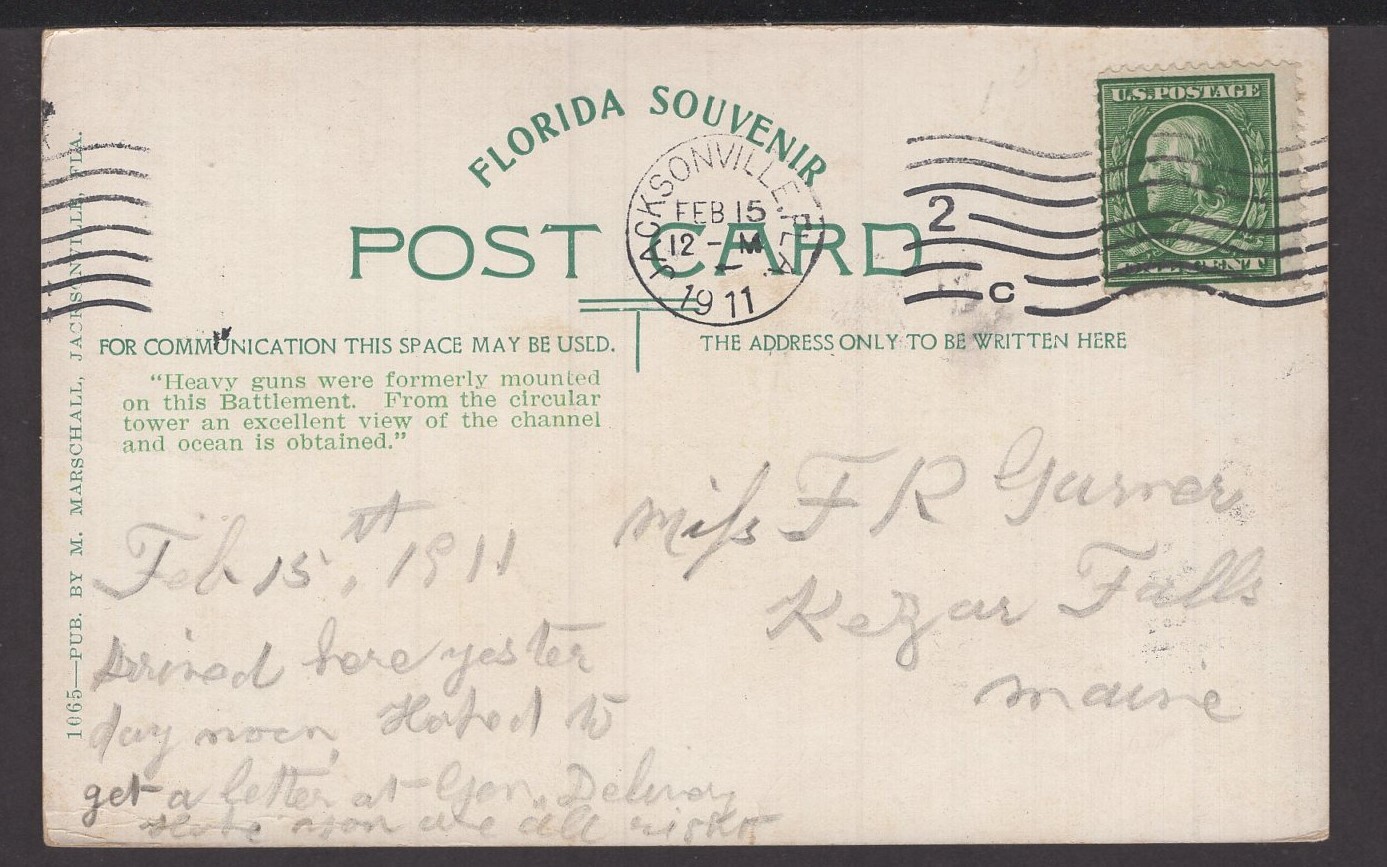 FLORIDA SOUVENIR
POST CARD
JACKSONVILLE, FLA.
FEB 15
12 - M
1911
2
C
U.S. POSTAGE
ONE CENT
FOR COMMUNICATION THIS SPACE MAY BE USED.
"Heavy guns were formerly mounted
on this Battlement. From the circular
tower an excellent view of the channel
and ocean is obtained."
1065—PUB. BY M. MARSCHALL, JACKSONVILLE, FLA.
Feb 15th, 1911
Arrived here yester
day noon, Hoped to
get a letter at Gen. Delivery
Hope you are all right
THE ADDRESS ONLY TO BE WRITTEN HERE
Miss F R Garner
Kezar Falls
Maine